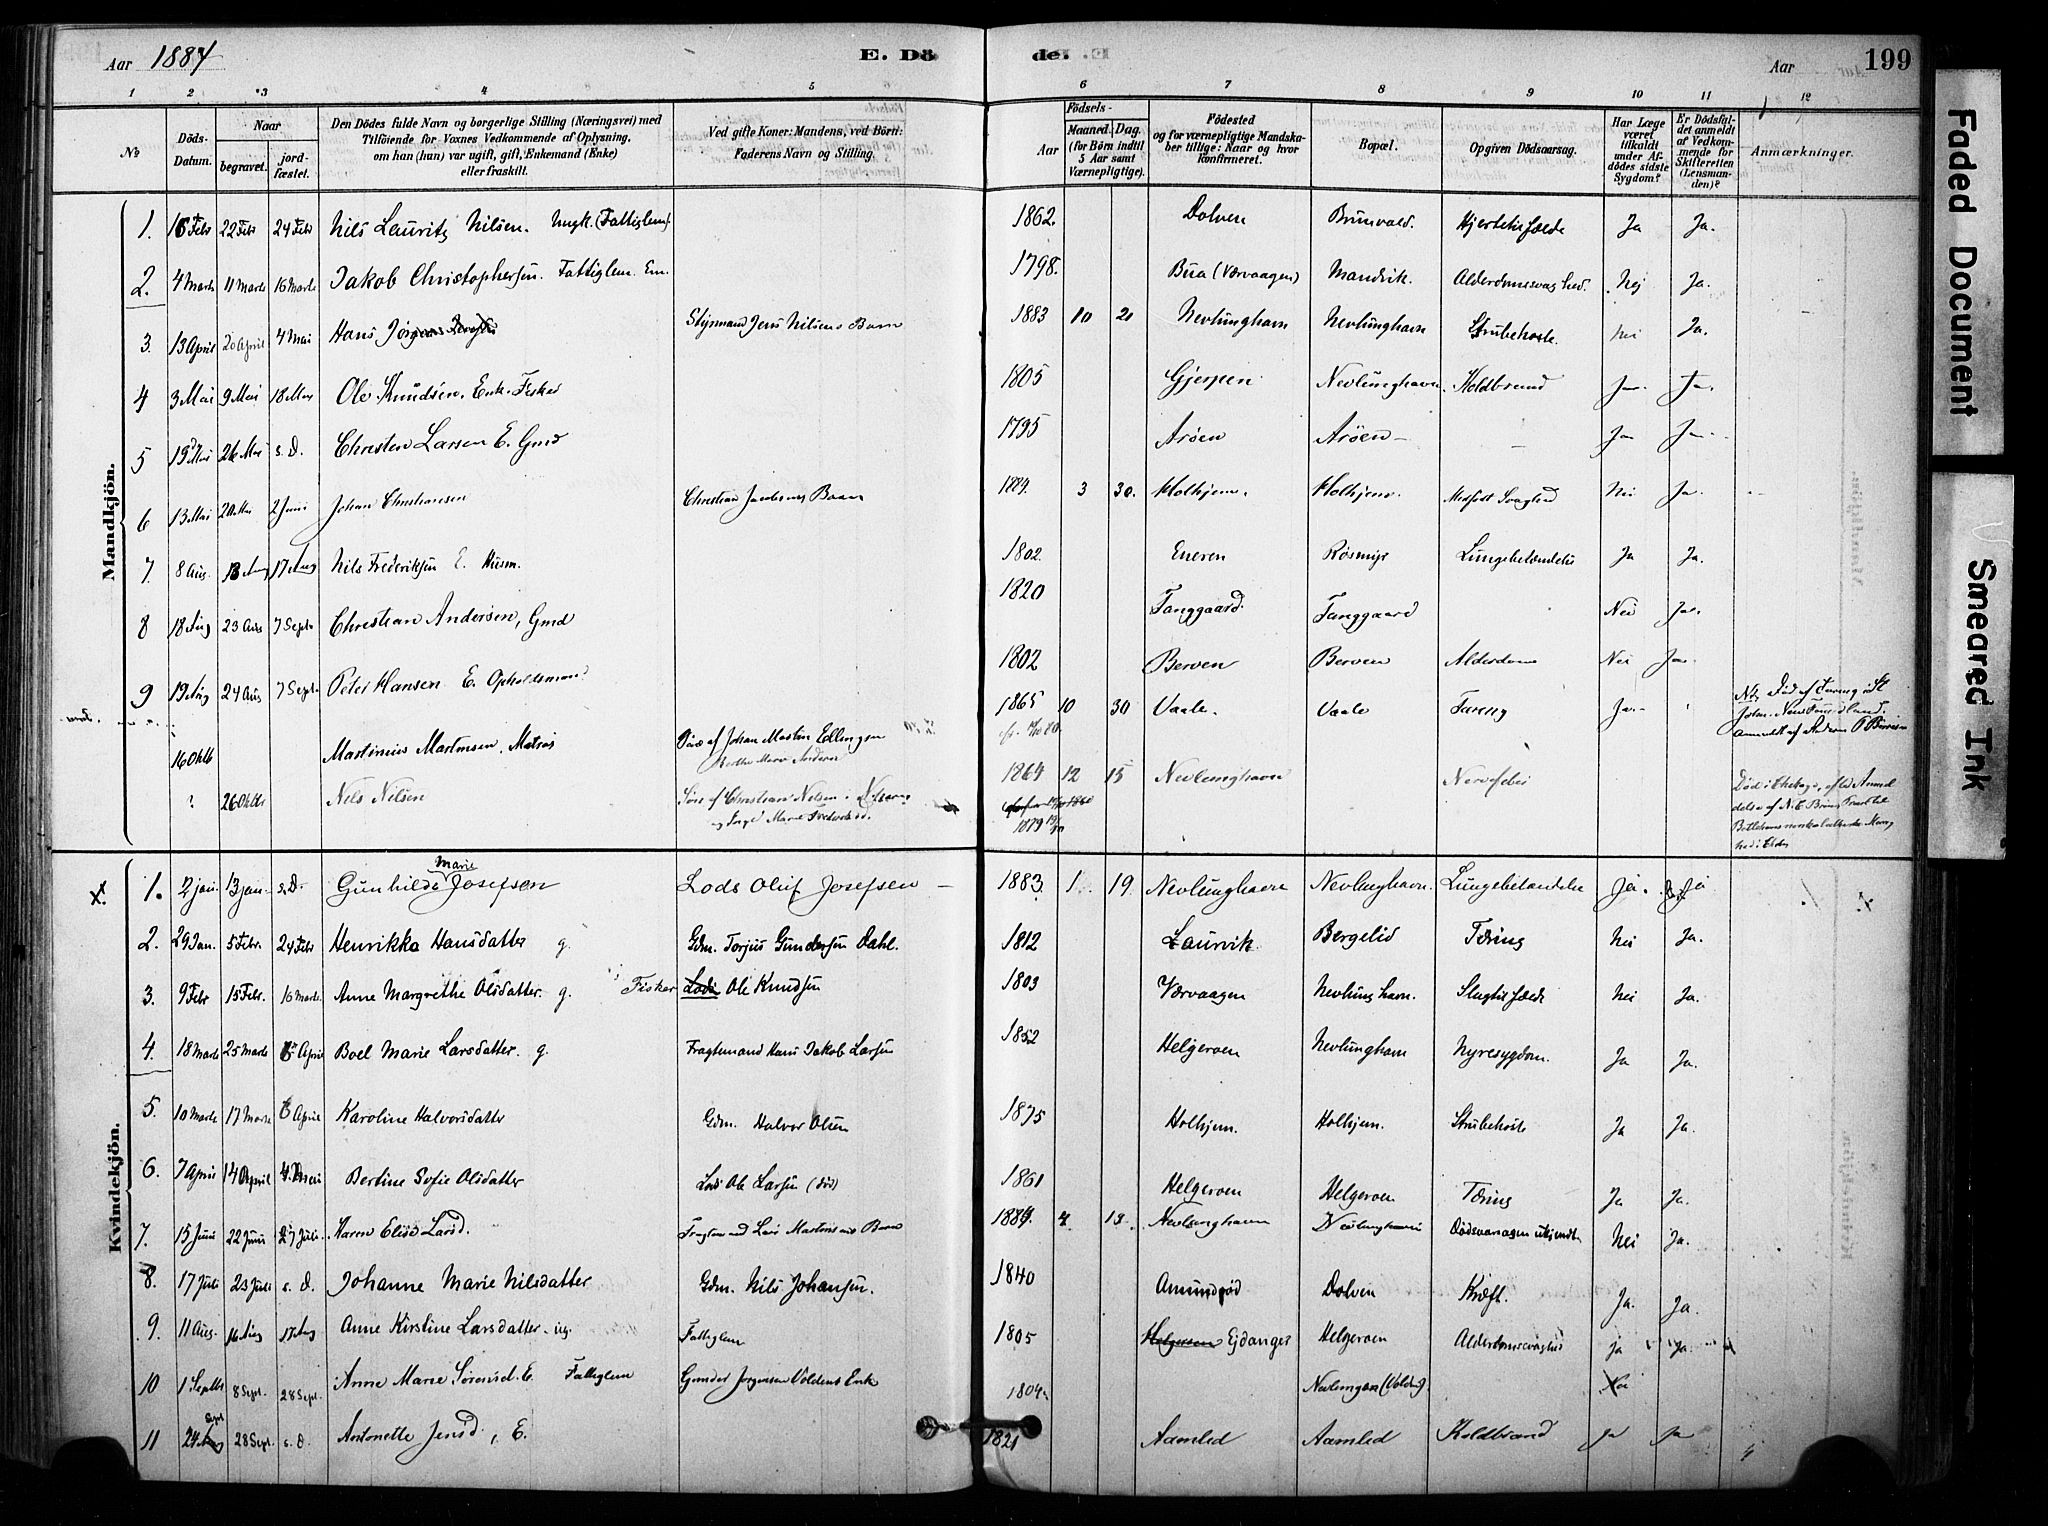 Aar 1884 E. Dö de. Aar 199
1 2 3 4 5 6 7 8 9 10 11 12
No
Döds-Datum.
Naar
begravet.
jordfæstet.
Den Dödes fulde Navn og borgerlige Stilling (Næringsvei) med
Tilföiende for Voxnes Vedkommende af Oplysning.
om han (hun) var ugift, gift, Enkemand (Enke)
eller fraskilt.
Ved gifte Koner: Mandens, ved Börn:
Faderens Navn og Stilling.
Födsels-
Aar
Maaned. Dag.
(for Börn indtil
5 Aar samt
Værnepligtige).
Födested
og for værnepligtige Mandska-
ber tillige: Naar og hvor
konfirmeret.
Bopæl.
Opgiven Dödsaarsag.
Har Læge
været
tilkaldt
under Af-
dödes sidste
Sygdom?
Er Dödsfal-
det anmeldt
af Vedkom-
mende for
Skifteretten
(Lensman-
den)?
Anmærkninger.
Mandkjön.
1. 16 Febr 22 Febr 24 Febr Nils Lauritz Nilsen. Ungk. (Fattiglem) 1862. Dolven Brunvald. Hjertetilfælde Ja Ja.
2. 4 Marts 11 Marts 16 Marts Jakob Christophersen. Fattiglem. Em. 1798. Bua (Værvaagen) Mandvik. Alderdomssvaghed. Nej Ja.
3. 13 April 20 April 4 Mai Hans Jørgen Styrmand Jens Nilsens Barn 1883 10 21 Nevlunghavn Nevlunghavn Strubehoste. Nei Ja.
4 3 Mai 9 Mai 18 Mai Ole Knudsen. Enk. Fisker 1805 Gjerpen Nevlunghavn. Koldbrand Ja. Ja.
5 19 Mai 26 Mai s. D. Christen Larsen E. Gmd 1795 Arøen Arøen — — Ja Ja
6 13 Mai 20 Mai 2 Juni Johan Christiansen Christian Jacobsens Barn 1884. 3 30. Holhjem. Holhjem. Medfødt Svaghed Nei Ja.
7 8 Aug. 13 Aug 17 Aug Nils Frederiksen E. Husm. 1802. Eneren Røsmyr Lungebetændelse Ja Ja.
8 18 Aug 23 Aug 7 Sept. Christian Andersen, Gmd 1820 Tanggaard. Tanggaard Nei Ja.
9 19 Aug 24 Aug 7 Sept. Peter Hansen E. Opholdsmand 1802 Berven Berven Alderdom Nei Ja.
16 Oktb Martinius Martinsen, Matros Søn af Johan Martin Ellingsen 1865 10 30 Vaale. Vaale Tæring Ja.
Nb. Død af Tæring i St
Johns. New Foundland.
Anmeldt af
? 26 Oktbr Nils Nilsen Søn af Christian Nilsen i 1864 12 15 Nevlunghavn
Kvindekjön.
1. 2 jan. 13 jan. s. D. Gunhilde Marie Josefsen Lods Oluf Josefsen — 1883. 1 19. Nevlunghavn Nevlunghavn. Lungebetændelse Ja. Ja
2. 29 Jan. 5 Febr. 24 Febr Henrikka Hansdatter g. Gdm. Torjus Gundersen Dahl. 1812 Laurvik Bergelid Tæring Nei Ja.
3. 9 Febr 15 Febr. 16 Marts Anne Margrethe Olsdatter. g. Fisker Lods Ole Knudsen 1803 Værvaagen Nevlunghavn. Slagtilfælde Nei Ja.
4. 18 Marts 25 Marts 6 April Boel Marie Larsdatter. g. Fragtemand Hans Jakob Larsen 1852 Helgeroen Nevlunghavn Nyresygdom. Ja Ja.
5. 10 Marts 17 Marts 6 April Karoline Halvorsdatter Gdm. Halvor Olsen 1875 Holhjem. Holhjem. Strubehoste Ja Ja.
6. 7 April 14 April 4. Mai Bertine Sofie Olsdatter Lods Ole Larsen (død) 1861 Helgeroen Helgeroen Tæring Ja Ja.
7. 15 Juni 22 Juni 27 Juli. Karen Elise Larsd. Fragtemand Lars Martinsens Barn 1884. 4 13. Nevlunghavn Nevlunghavn Dødsaarsagen ukjendt. Nei Ja.
8. 17 Juli 23 Juli s. D. Johanne Marie Nilsdatter Gdm. Nils Johansen. 1840 Amundrød Dolven Kræft. Ja. Ja.
9. 11 Aug. 16 Aug 17 Aug Anne Kirstine Larsdatter. ug. Fattiglem 1805 Helgeroen Ejdanger Helgeroen Alderdomssvaghed ja Ja.
10 1 Septbr 8 Sept. 28 Sept. Anne Marie Sørensd. E. Fattiglem Gunder Jørgensen Voldens Enke 1804. Nevlunghavn (Volden). Nei
11 24 Sept 28 Sept. s. D. Antonette Jensd., E. 1821 Aamlid Aamlid Koldbrand Ja Ja
Faded Document
Smeared Ink